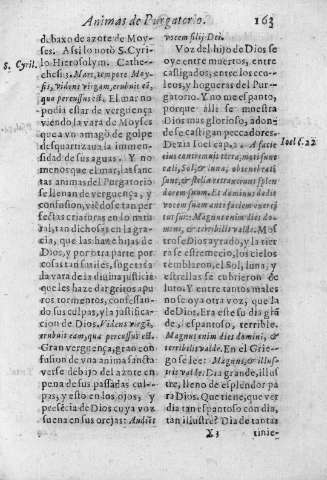 Animas de Purgatorio. 163
debaxo de azote de Moy-
ses. Assi lo notò S. Cyri-
S. Cyril.
lo Hierosolym. Cathe-
chesi 3. Mare, tempore Moy-
sis, videns virgam, erubuit eũ,
qua percussus est. El mar no
podia estar de verguença
viendo la vara de Moyses
que a vn amagò de golpe
desquartizaua la immen-
sidad de sus aguas. Y no
menos que el mar, las sanc-
tas animas del Purgatorio
se llenan de verguença, y
confusion, viẽdose tan per-
fectas criaturas en lo natu-
ral, tan dichosas en la gra-
cia, que las haze hijas de
Dios, y por otra parte por
cosas tan similes, sogetas a
la vara de la diuina justicia
que les haze dar gritos a pu-
ros tormentos, confessan-
do sus culpas, y la justifica-
cion de Dios. Videns virgã,
erubuit eam, qua percussus est.
Gran verguença, gran con-
fusion de vna anima sancta
verse debaxo del azote en
pena de sus passadas cul-
pas, y esto en los ojos, y
presẽcia de Dios cuya voz
suena en sus orejas: Audiet
vocem filij Dei.
Voz del hijo de Dios se
oye entre muertos, entre
castigados, entre los eco-
leos, y hogueras del Pur-
gatorio. Y no me espanto,
porque alli se muestra
Dios mas glorioso, adon-
de se castigan peccadores.
Dezia Ioel cap. 2. A facie
Ioel c. 22
eius contremuit terra, moti sunt
cæli, Sol, & luna, obtenebrati
sunt, & stellæ retraxerunt splen
dorem suum. Et Dominus dedit
vocem suam ante faciem exerci
tus sui: Magnus enim dies do-
mini, & terribilis valdè. Mos
trose Dios ayrado, y la tier
ra se estremecio, los cielos
temblaron, el Sol, luna, y
estrellas se cubrieron de
luto. Y entre tantos males
no se oya otra voz, que la
de Dios. Era este su dia grã
de, i espantoso, terrible.
Magnus enim dies domini, &
terribilis valde. En el Grie-
go se lee: Magnus, & illus-
tris valde. Dia grande, illus
tre, lleno de esplendor pa
ra Dios. Que tiene, que ver
dia tan espantoso con dia,
tan illustre? Dia de tantas
X 3 tinie-